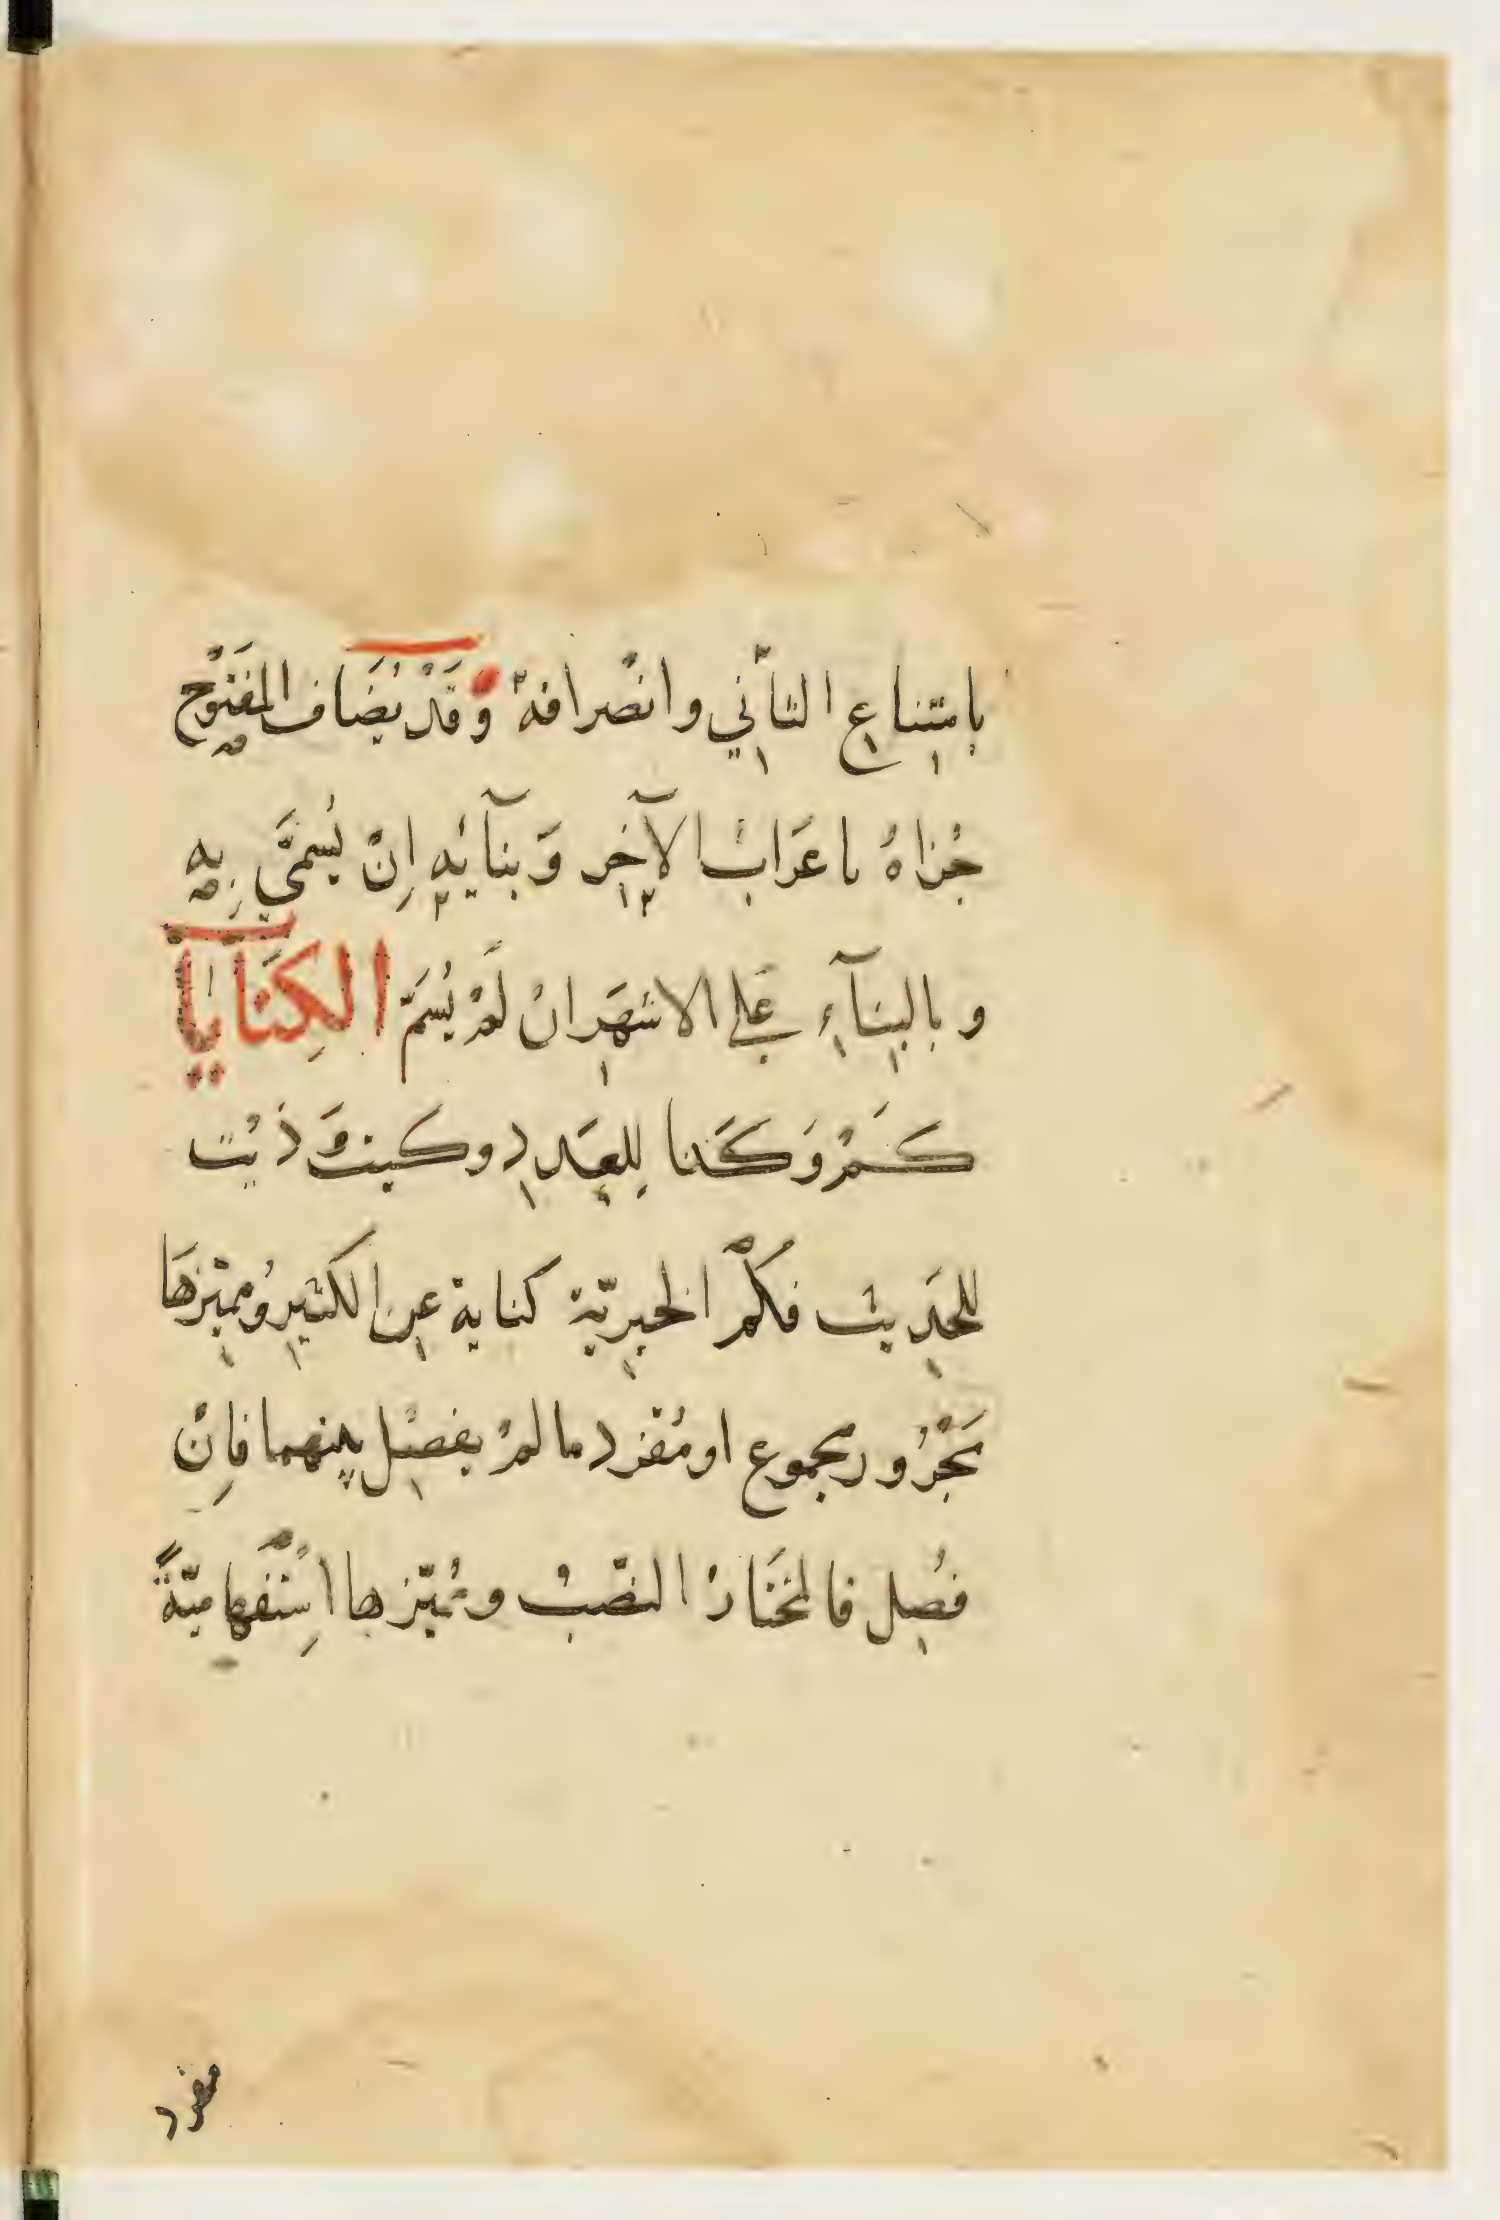 بامتناع الثاني وانصرافه وَقَدْ يُضَاف المفتوح
جُزاهُ باعَرابُ الآخِر وَبنآئه اِنْ يُسمَّي بِه
وبالبنآء عَلي الاشهَر انْ لَمْ يُسَمّ الكِنَآيات
كَمْ وَكَذا لِلعَدد وكيتَ وَذَيْت
للحَديث فكُم الخبريّة كناية عن الكثير ومُميّزهَا
مَجْرُور مجموع او مُفرد ما لمْ يفصل بينهما فاِنْ
فُصِل فالمختَارُ النصْبُ ومُميّزها اسْتِفهاميّةً
مفرد